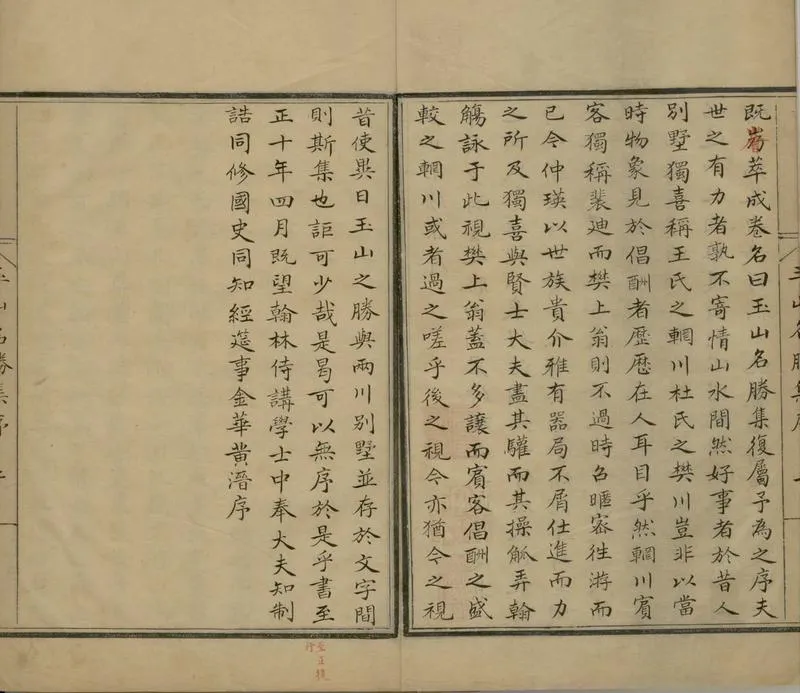 既萃成卷名曰玉山名勝集復屬予為之序夫
世之有力者孰不寄情山水間然好事者於昔人
別墅獨喜稱王氏之輞川杜氏之樊川豈非以當
時物象見於倡酬者歷歷在人耳目乎然輞川賓
客獨稱裴迪而樊上翁則不過時召暱密往游而
已今仲瑛以世族貴介雅有器局不屑仕進而力
之所及獨喜與賢士大夫盡其驩而其操觚弄翰
觴詠于此視樊上翁蓋不多讓而賓客倡酬之盛
較之輞川或者過之嗟乎後之視今亦猶今之視
昔使異日玉山之勝與兩川別墅並存於文字間
則斯集也詎可少哉是曷可以無序於是乎書至
正十年四月既望翰林侍講學士中奉大夫知制
誥同修國史同知經筵事金華黃溍序
玉山名勝集序